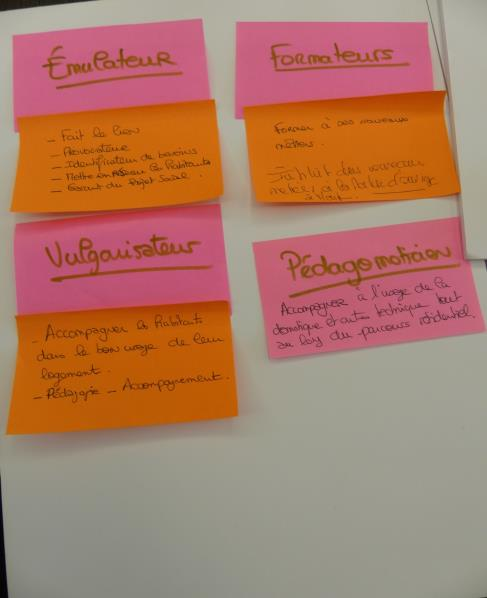 Émulateur
- Fait le lien
- Provocateur
- Identificateur de besoins
- Mettre en réseau les habitants
- Garant du Projet Social.
Formateurs
Former à ces nouveaux
métiers.
Vulgarisateur
- Accompagner les habitants
dans le bon usage de leur
logement.
- Pédagogie - Accompagnement.
Pédagomoticien
Accompagner à l'usage de la
domotique et autre technique tout
au long du parcours résidentiel.